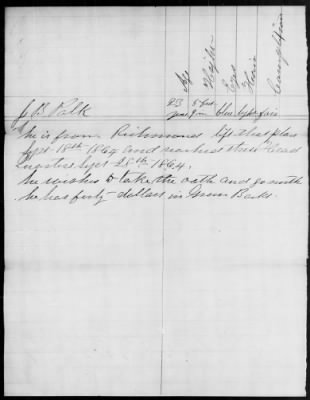 Age Height Eyes Hair Complexion
J B Polk 23 yrs 5 feet 9 in blue light fair
he is from Richmond left that place
Sept 18th 1864 and reached these Head
Quarters Sept 28th 1864.
he wishes to take the oath and go north
he has forty dollars in Green Backs.